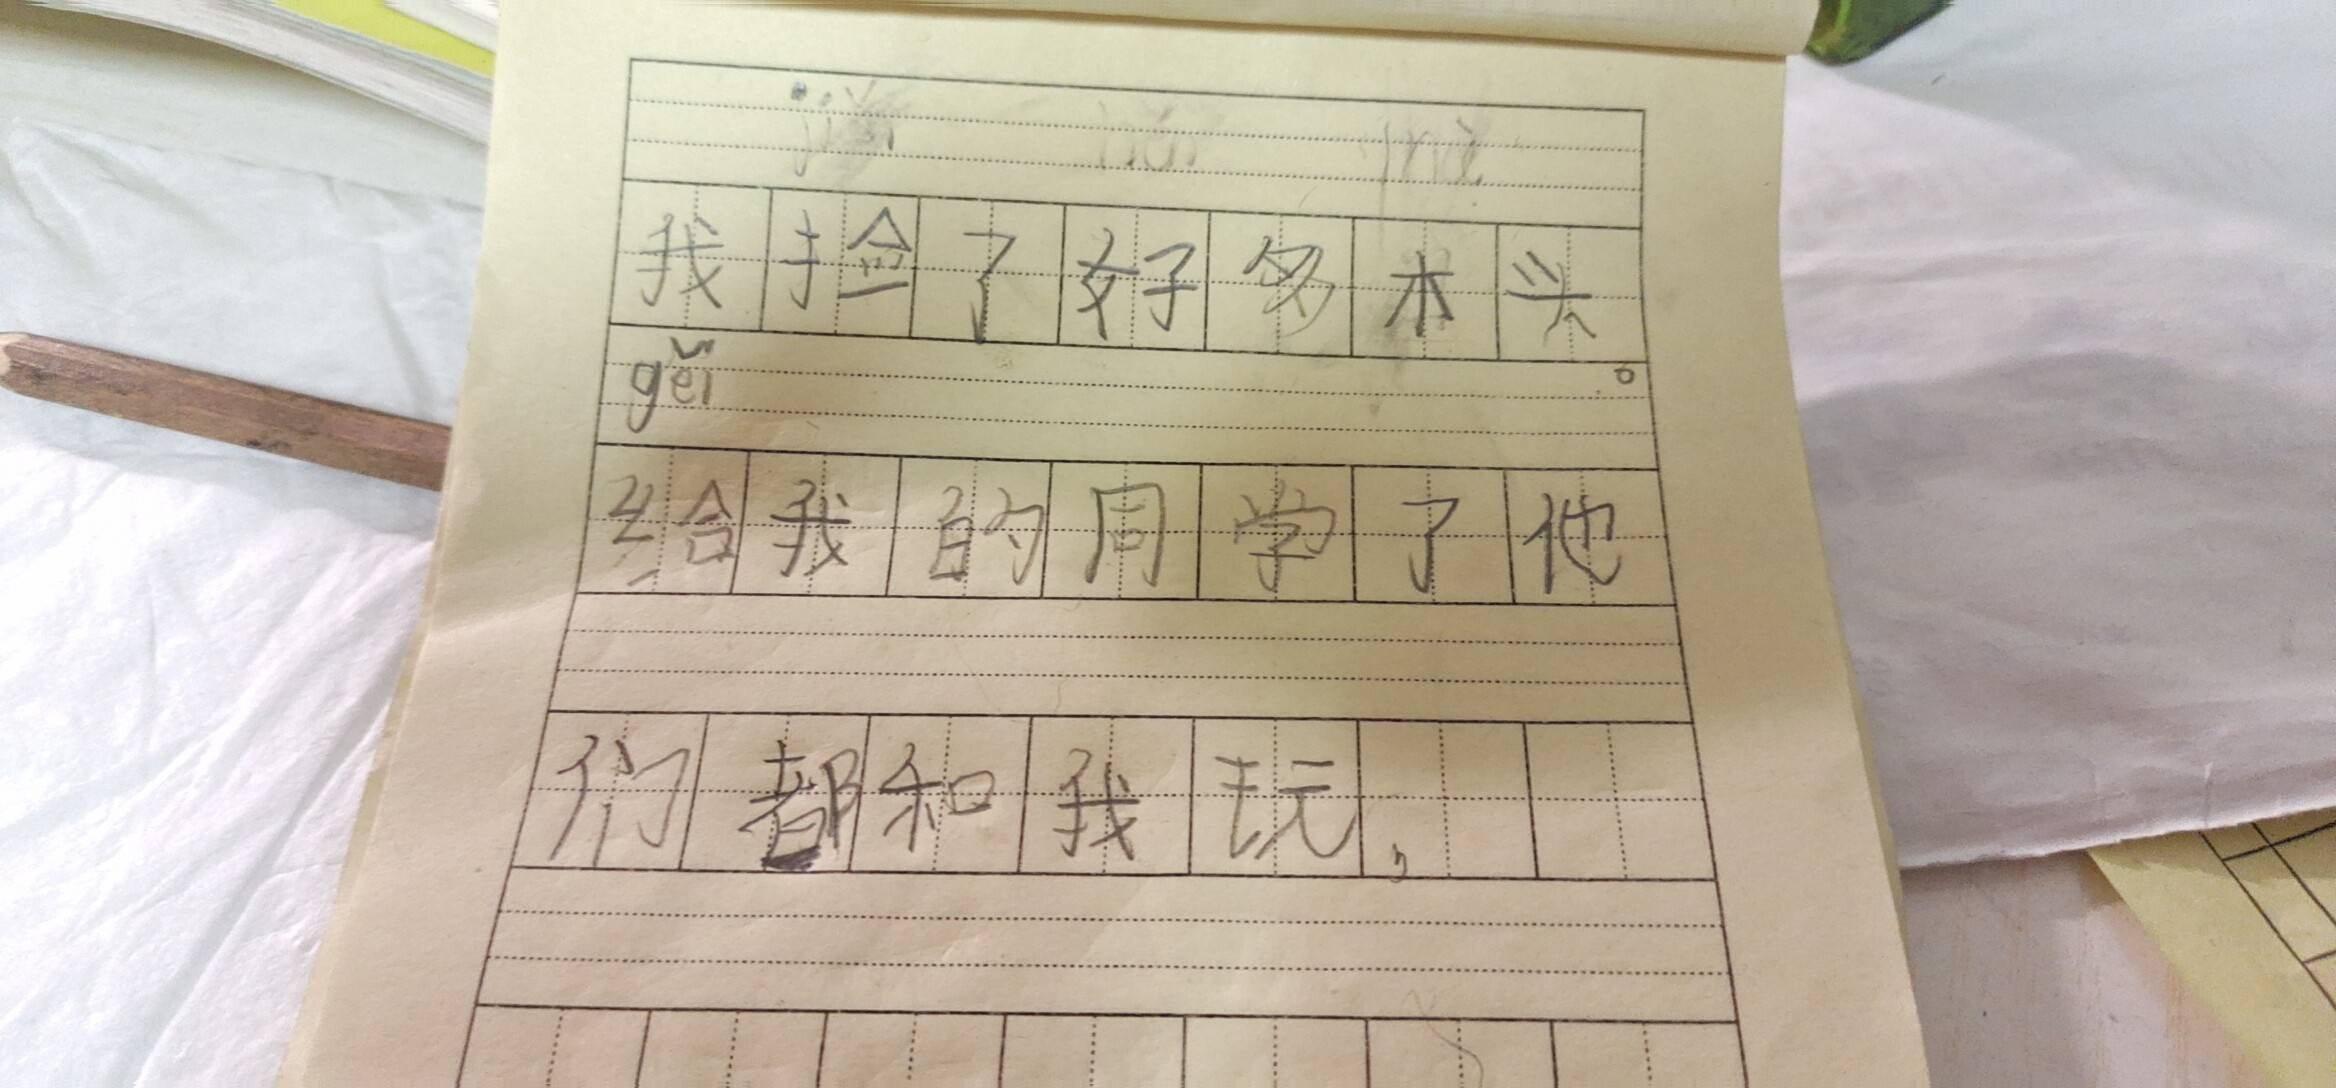 我捡了好多木头。
gěi
给我的同学了他
们都和我玩,